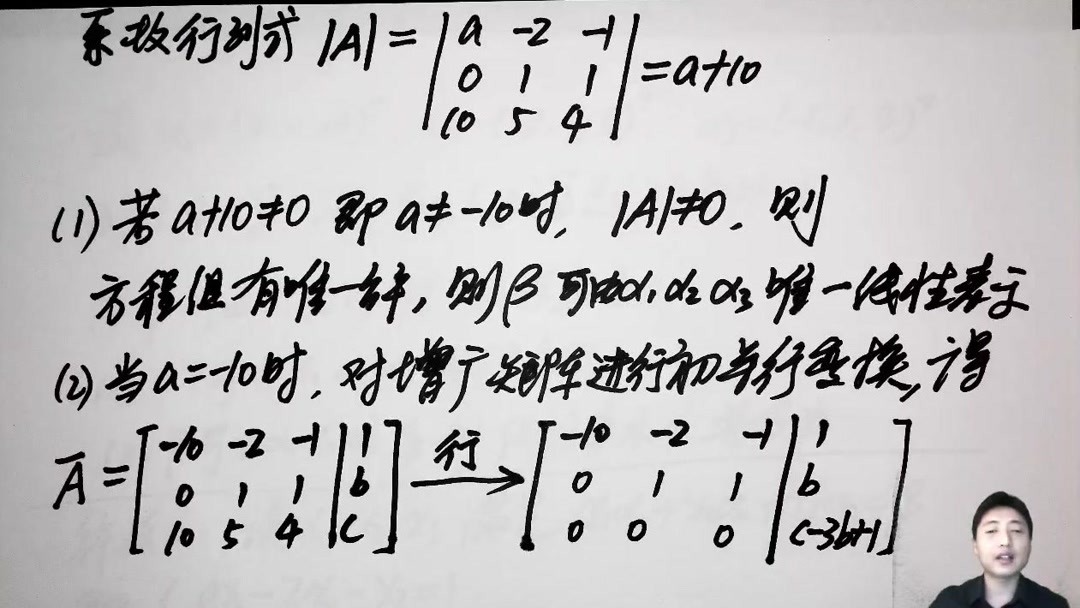 系数行列式 |A| = | a -2 -1 | = a+10
0 1 1
10 5 4
(1) 若 a+10≠0 即 a≠-10时, |A|≠0. 则
方程组有唯一解, 则β可由α₁α₂α₃唯一线性表示
(2) 当a=-10时, 对增广矩阵进行初等行变换, 得
-10 -2 -1 | 1 行 -10 -2 -1 | 1
Ā = 0 1 1 | b → 0 1 1 | b
10 5 4 | c 0 0 0 | c-3b+1